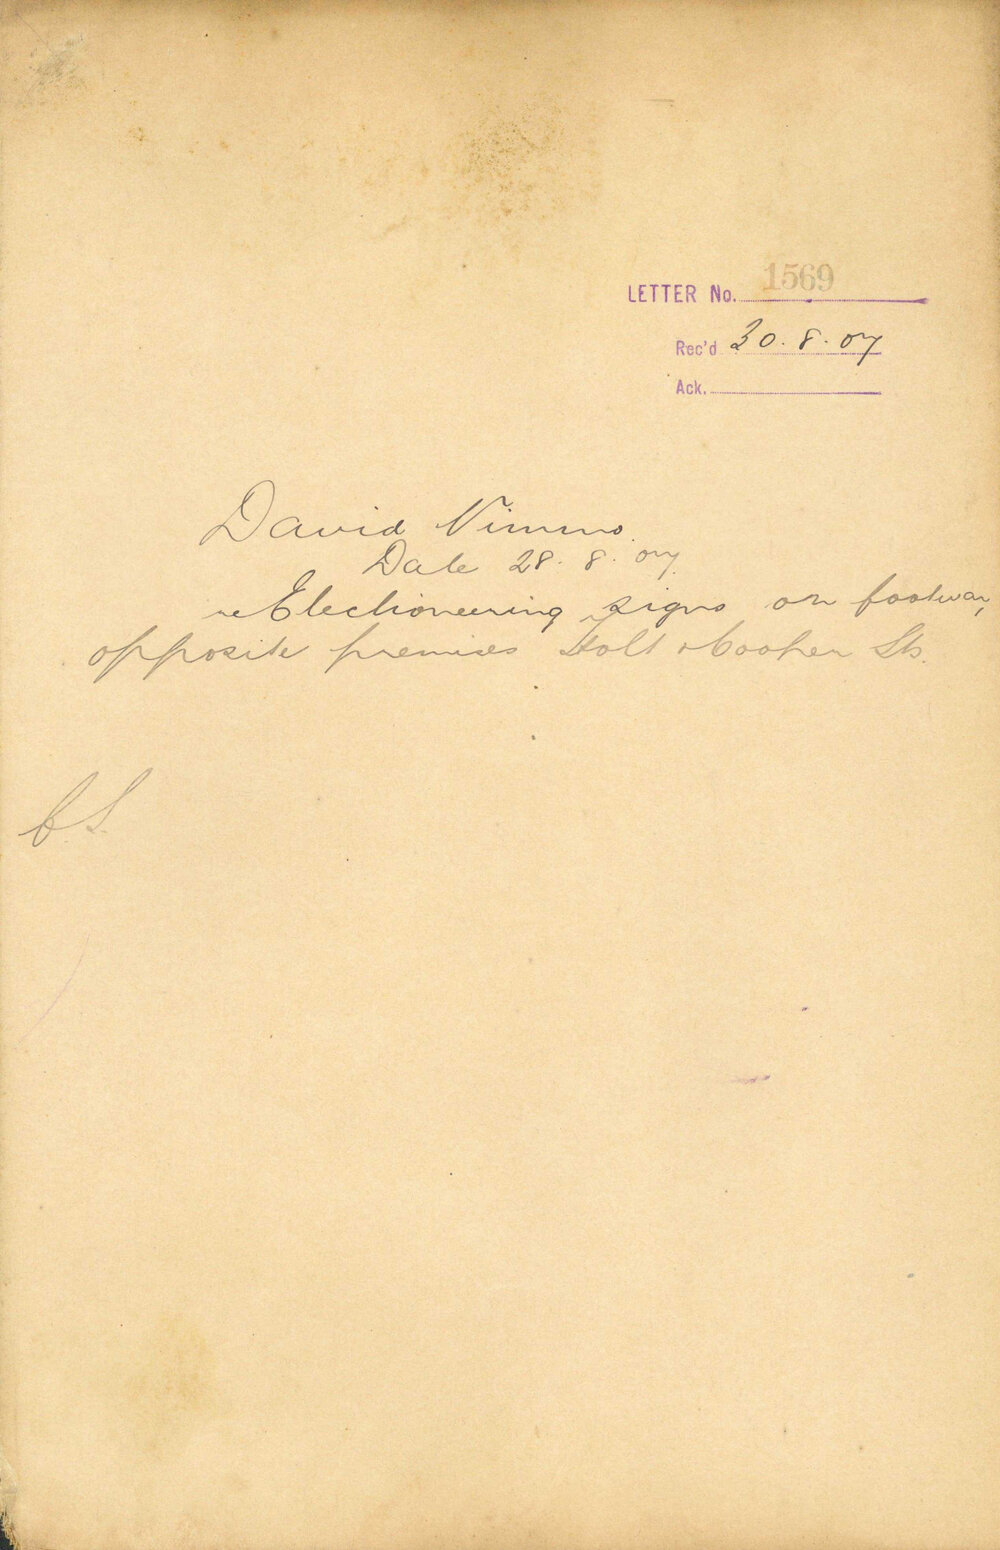 LETTER No. 1569
Rec'd 30.8.07
Ack.
David Nimmo.
Date 28.8.07.
re Electioneering signs on footway
opposite premises Holt & Cooper Sts.
CS.